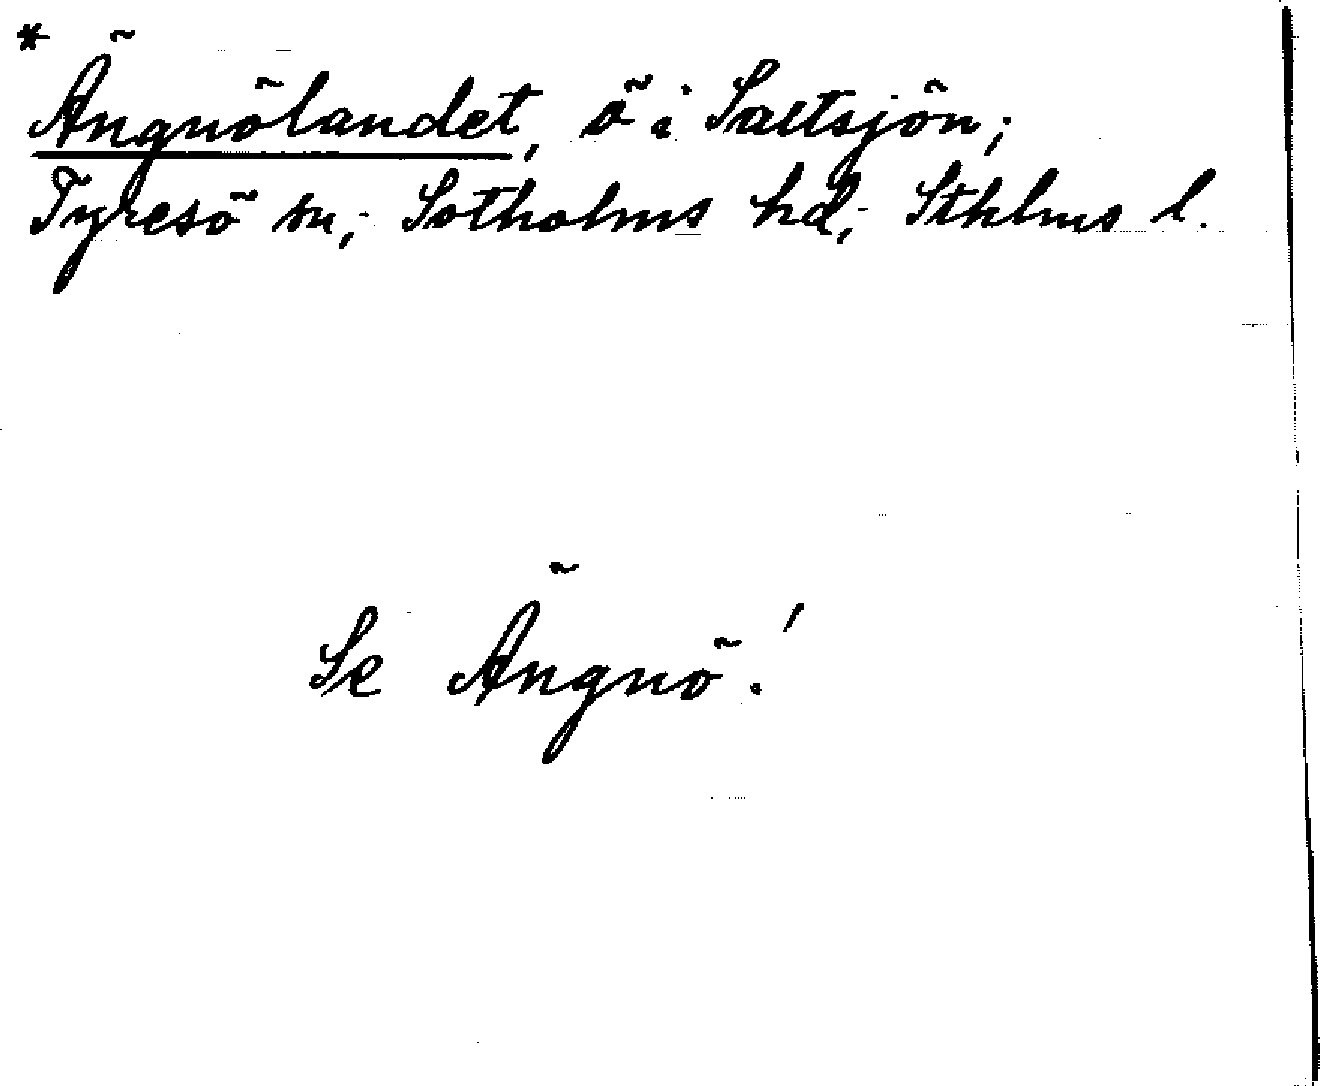 * Ängnölandet, ö i Saltsjön;
Tyresö sn; Sotholms hd; Sthlms l.
Se Ängnö!